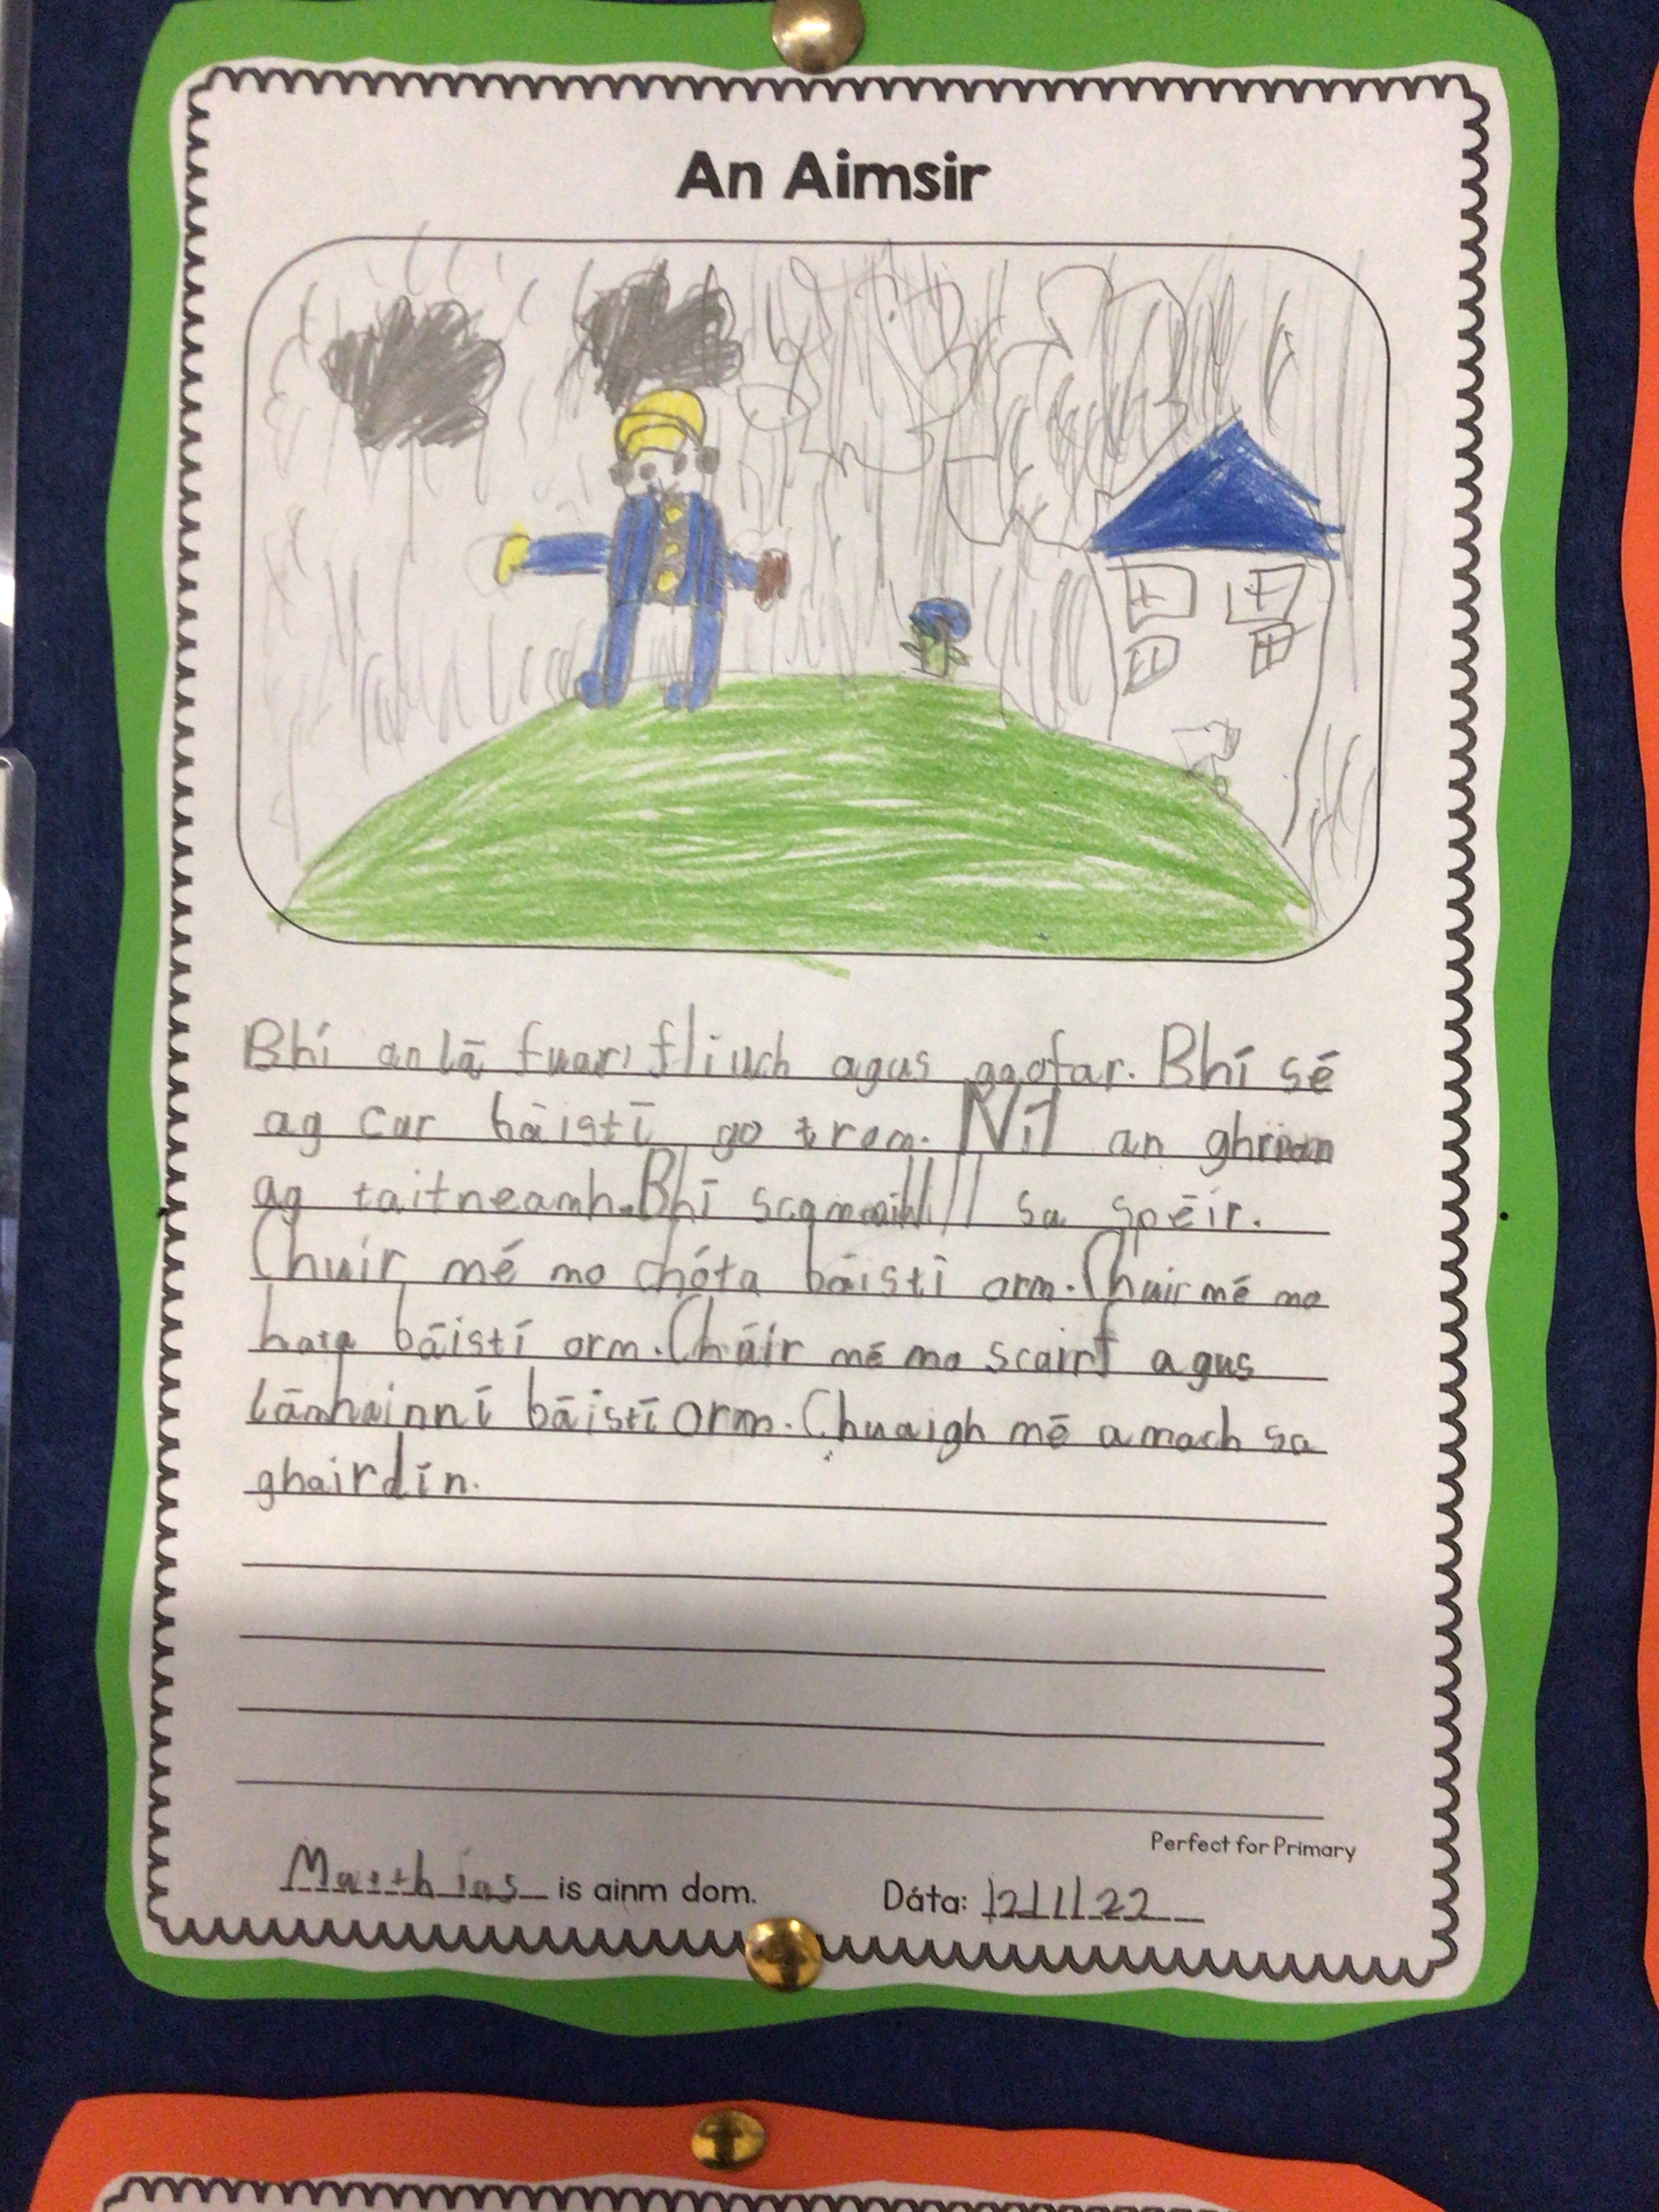 An Aimsir
Bhí an lá fuar, fliuch agus gaofar. Bhí sé
ag cur báistí go trom. Níl an ghrian
ag taitneamh. Bhí scamaill sa spéir.
Chuir mé mo chóta báistí orm. Chuir mé mo
hata báistí orm. Cháir mé mo scairf agus
lámhainní báistí orm. Chuaigh mé amach sa
ghairdín.
Perfect for Primary
Matthias is ainm dom. Dáta: 12/1/22